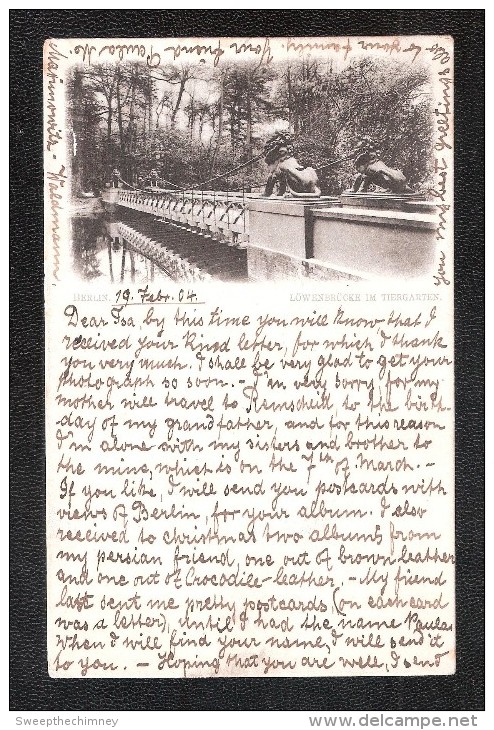 BERLIN. 19. Febr. 04. LÖWENBRÜCKE IM TIERGARTEN.
Dear Isa, by this time you will know that I
received your kned letter, for which I thank
you very much. I shall be very glad to get your
photograph so soon. - I'm very sorry, for my
mother will travel to Remscheid, to the birth-
day of my grandfather, and for this reason
I'm alone with my sisters and brother to
the mine, which is on the 7th of March. -
If you like, I will send you postcards with
views of Berlin, for your album. I also
received to christmas two albums from
my persian friend, one out of brown leather
and one out of Crocodile-leather. - My friend
last sent me pretty postcards, (on each card
was a letter), until I had the name Paula.
When I will find your name, I will send it
to you. - Hoping that you are well, I send
you my best greetings
also to your family. Your friend Paula M.
Marimowitz - Waldmann.
Sweepthechimney